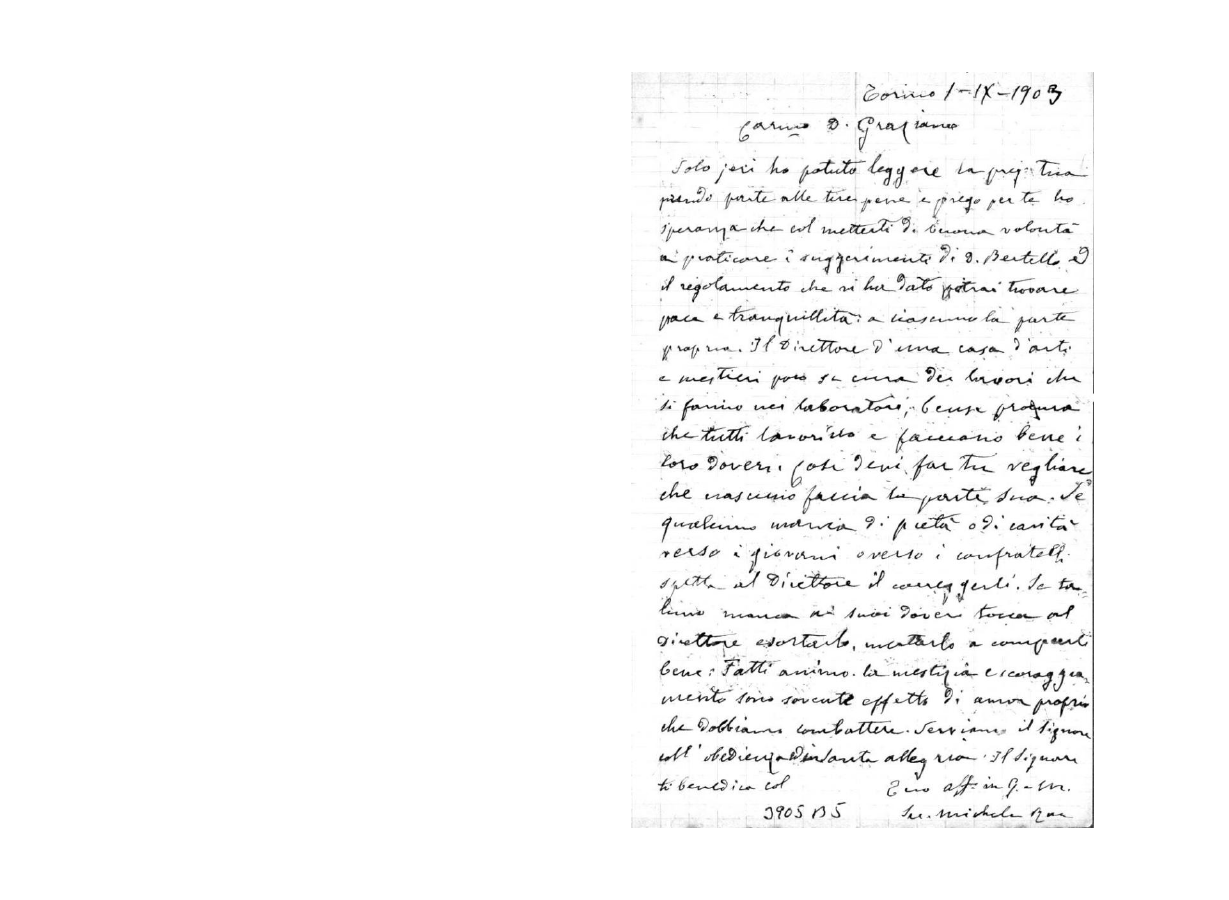 Torino 1-IX-1903
Carmo D. Graziano
Solo jeri ho potuto leggere la preg. tua
prendo parte alle tue pene e prego per te ho
speranza che col metterti di buona volontà
a praticare i suggerimenti di D. Bertello ed
il regolamento che vi ha dato potrai trovare
pace e tranquillità: a ciascuno la parte
propria. Il Direttore d'una casa d'arti
e mestieri poco si cura dei lavori che
si fanno nei laboratori, bensì procura
che tutti lavorino e facciano bene i
loro doveri. Così devi far tu vegliare
che ciascuno faccia la parte sua. Se
qualcuno manca di pietà o di carità
verso i giovani o verso i confratelli
spetta al Direttore il correggerli. Se ta=
luno manca ai suoi doveri tocca al
Direttore esortarlo, aiutarlo a compierli
bene: Fatti animo. la mestizia e scoraggia
mento sono sovente effetto di amor proprio
che dobbiamo combattere. Serviamo il Signore
coll'obedienza ed in santa allegria. Il Signore
ti benedica col
Tuo aff. in G. e M.
Sac. Michele Rua
3905 B5